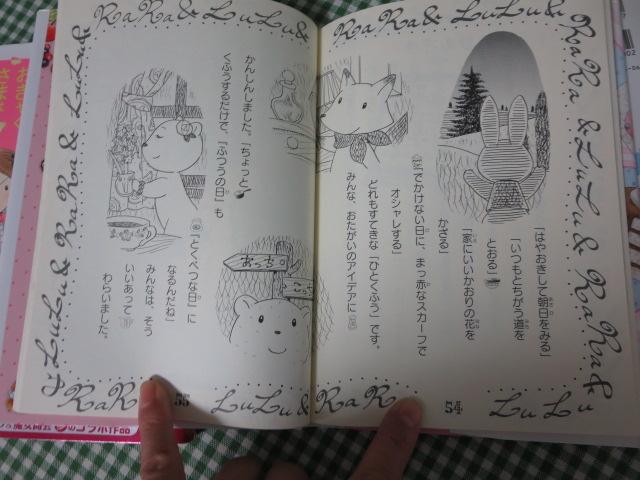 RaRa & LuLu & RaRa & LuLu &
「はやおきして朝日をみる」
「いつもとちがう道を
とおる」
「家にいいかおりの花を
かざる」
「でかけない日に、まっ赤なスカーフで
オシャレする」
どれもすてきな「ひとくふう」です。
みんな、おたがいのアイデアに
54
かんしんしました。「ちょっと
くふうするだけで、「ふつうの日」も
「とくべつな日」に
なるんだね」
みんなは、そう
いいあって
わらいました。
あっち
55